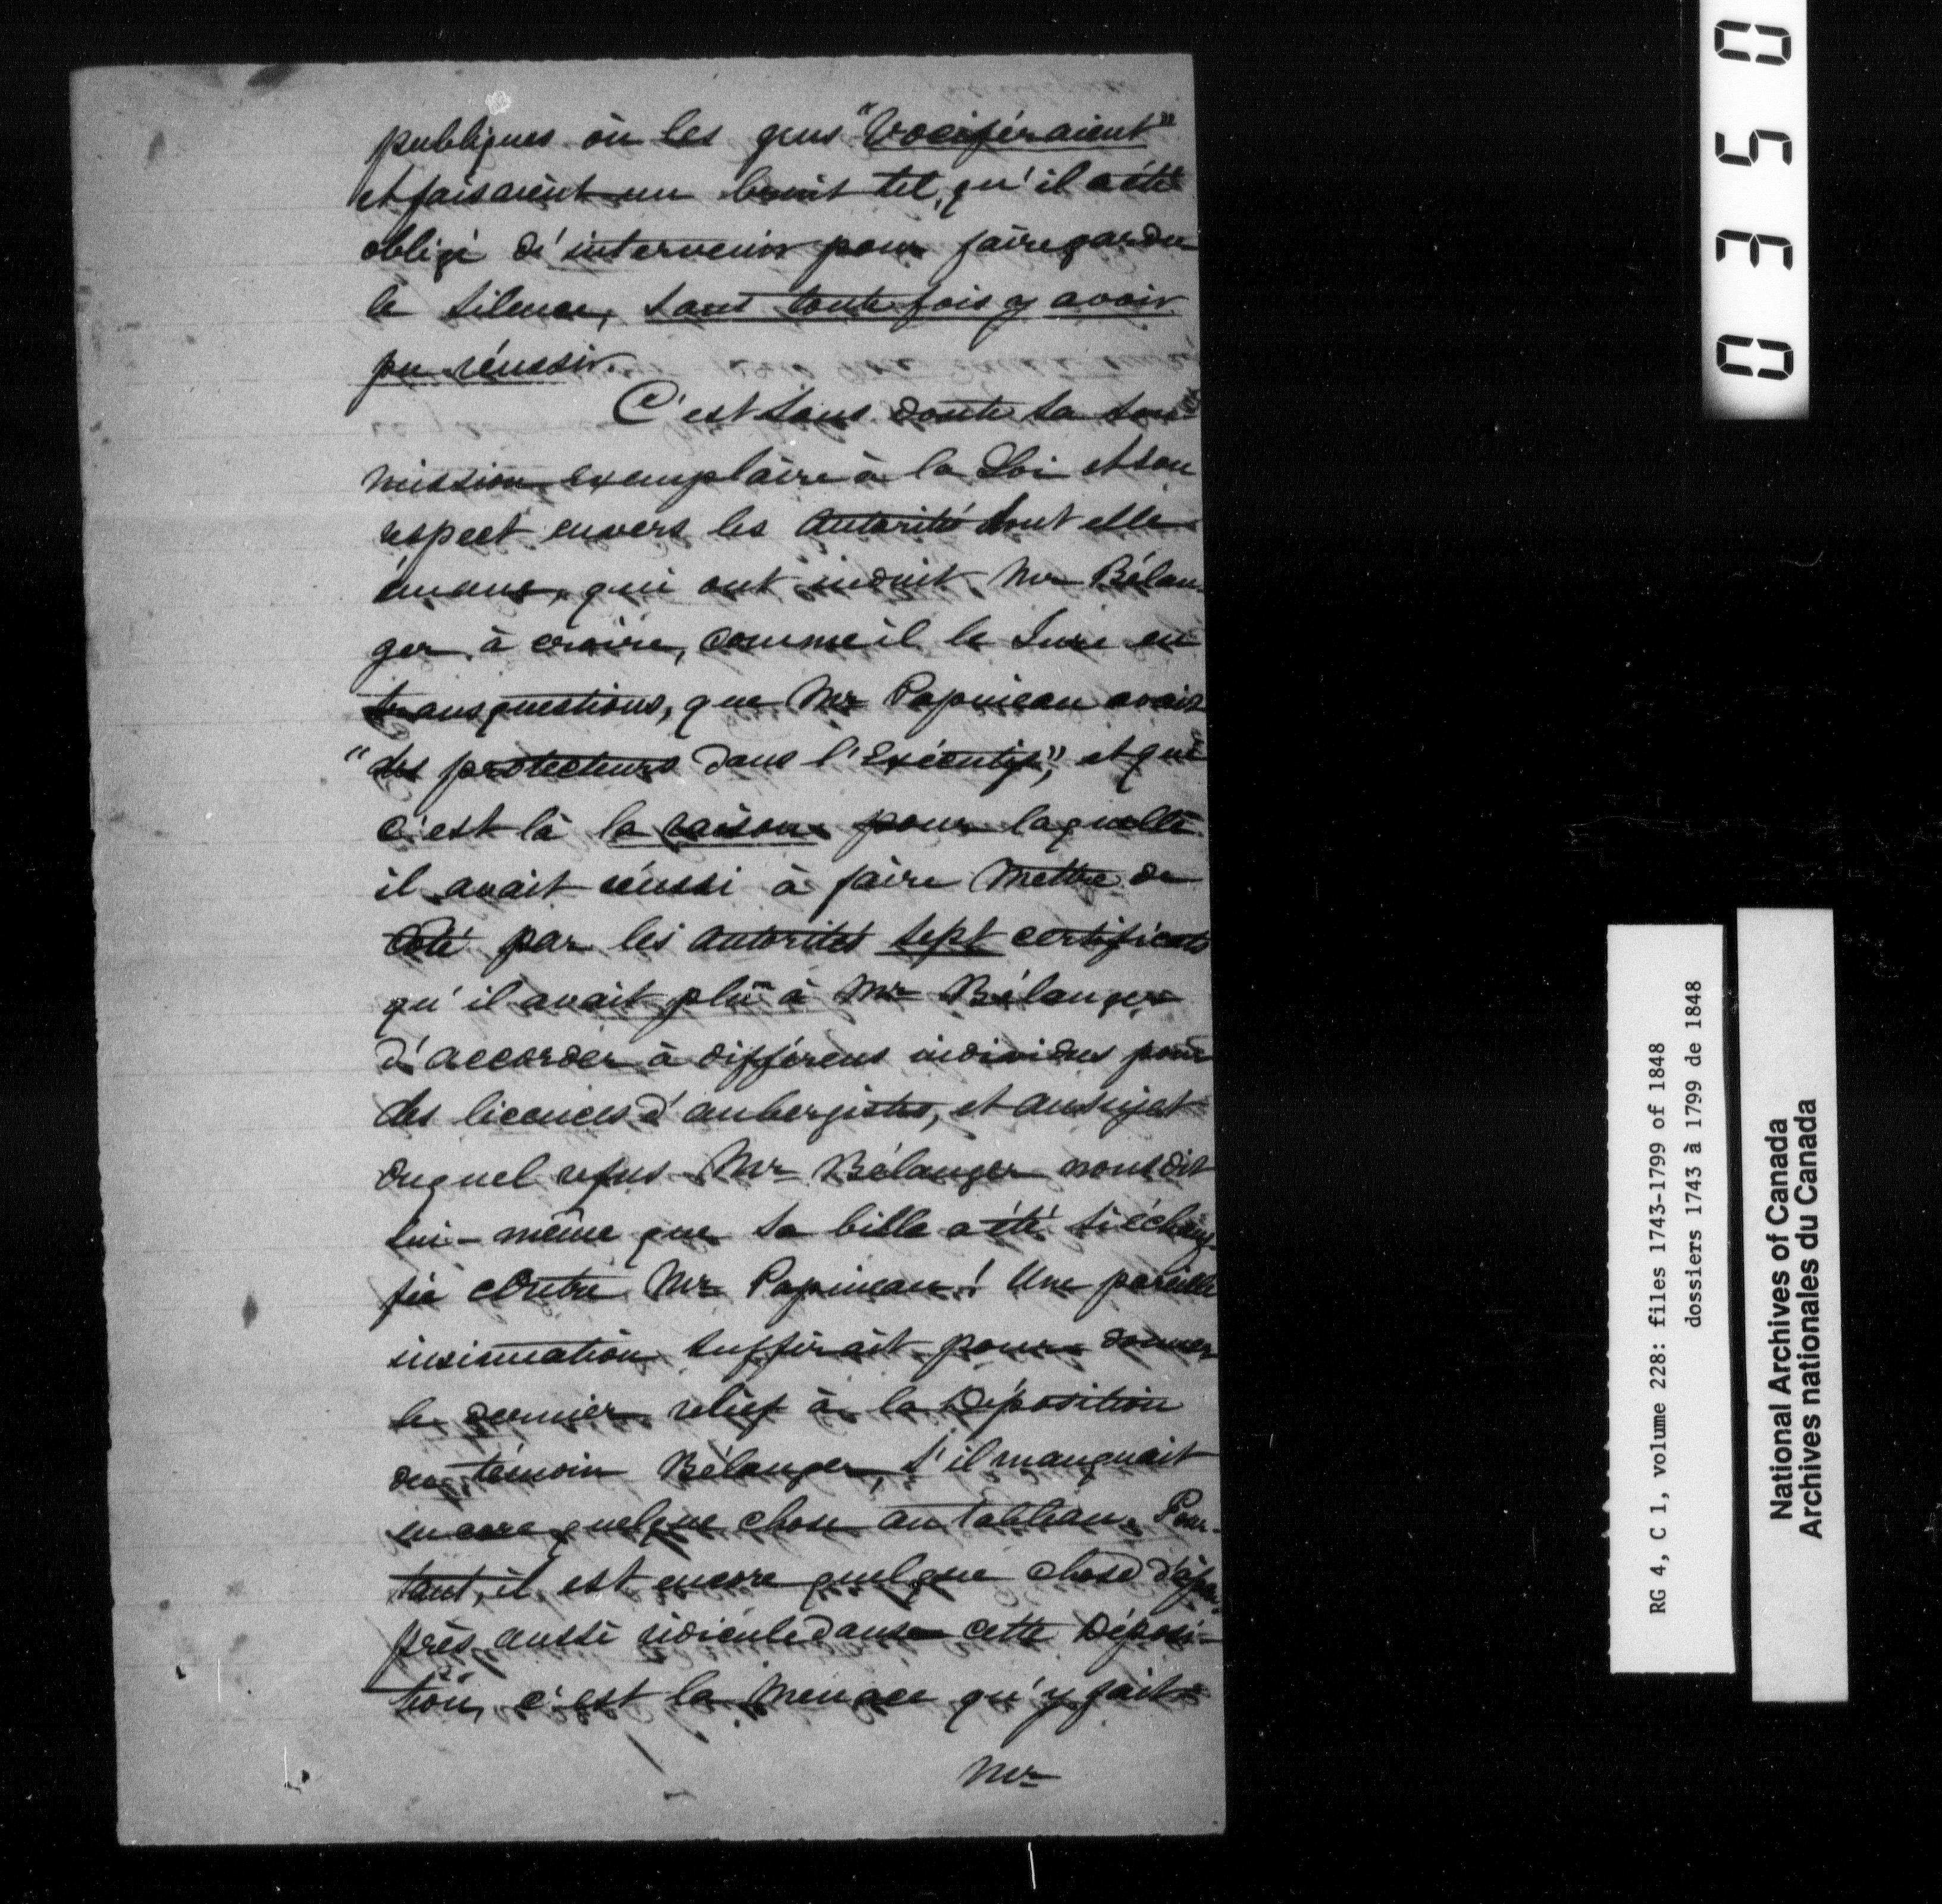 publiques où les gens "Vociféraient"
et faisaient un bruit tel, qu'il a été
obligé d'intervenir pour faire garder
le silence, sans toute fois y avoir
pu réussir.
C'est sans doute sa sou-
mission exemplaire à la Loi et son
respect envers les autorités dont elle
émane, qui ont induit Mr Bélan-
ger à croire, comme il le Jure en
transquestions, que Mr Papineau avait
"des protecteurs dans l'Exécutif," et que
c'est là la raison pour laquelle
il avait réussi à faire mettre de
Côté par les autorités sept certificats
qu'il avait plû à Mr Bélanger
d'accorder à différens individus pour
des licences d'aubergistes, et au sujet
duquel refus Mr Bélanger nous dit
lui-même que sa bille a été si échauf-
fée contre Mr Papineau! Une pareille
insinuation suffirait pour donner
le dernier relief à la Déposition
du témoin Bélanger, s'il manquait
encore quelque chose au Tableau. Pour-
tant, il est encore quelque chose d'à peu
près aussi ridicule dans cette Déposi-
tion, c'est la menace qu'y fait
Mr
0350
RG 4, C 1, volume 228: files 1743-1799 of 1848
dossiers 1743 à 1799 de 1848
National Archives of Canada
Archives nationales du Canada